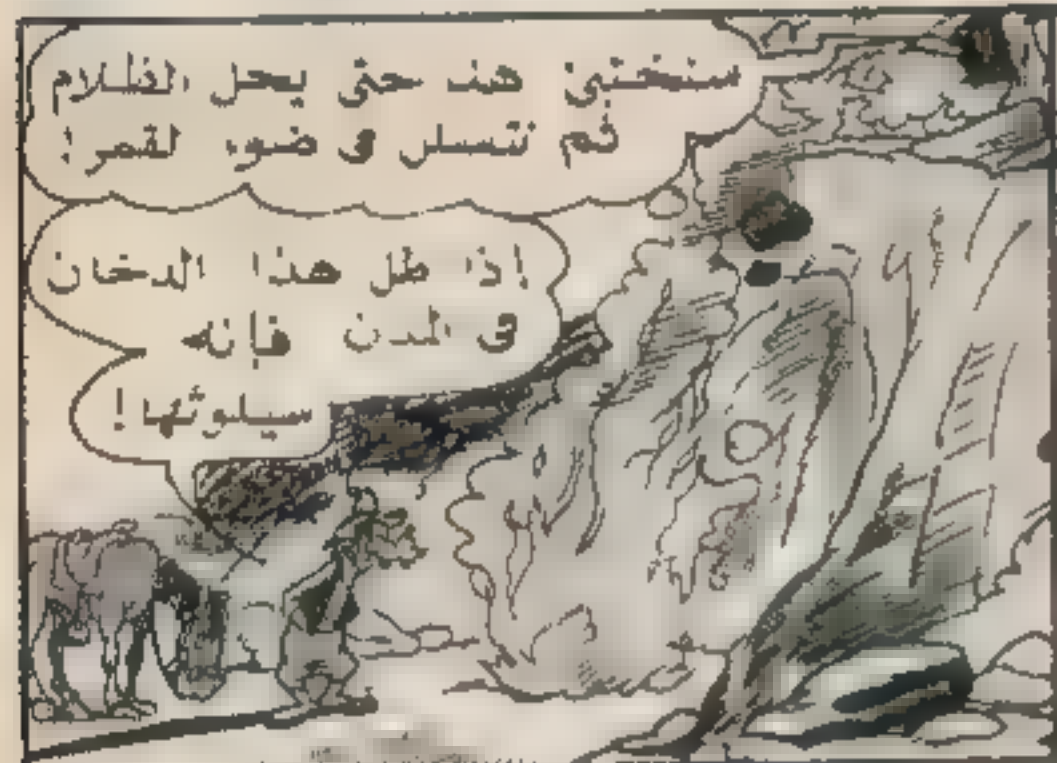 سنختبئ هنا حتى يحل الظلام
ثم نتسلل فى ضوء القمر!
إذا ظل هذا الدخان
فى المدن فإنه
سيلوثها!